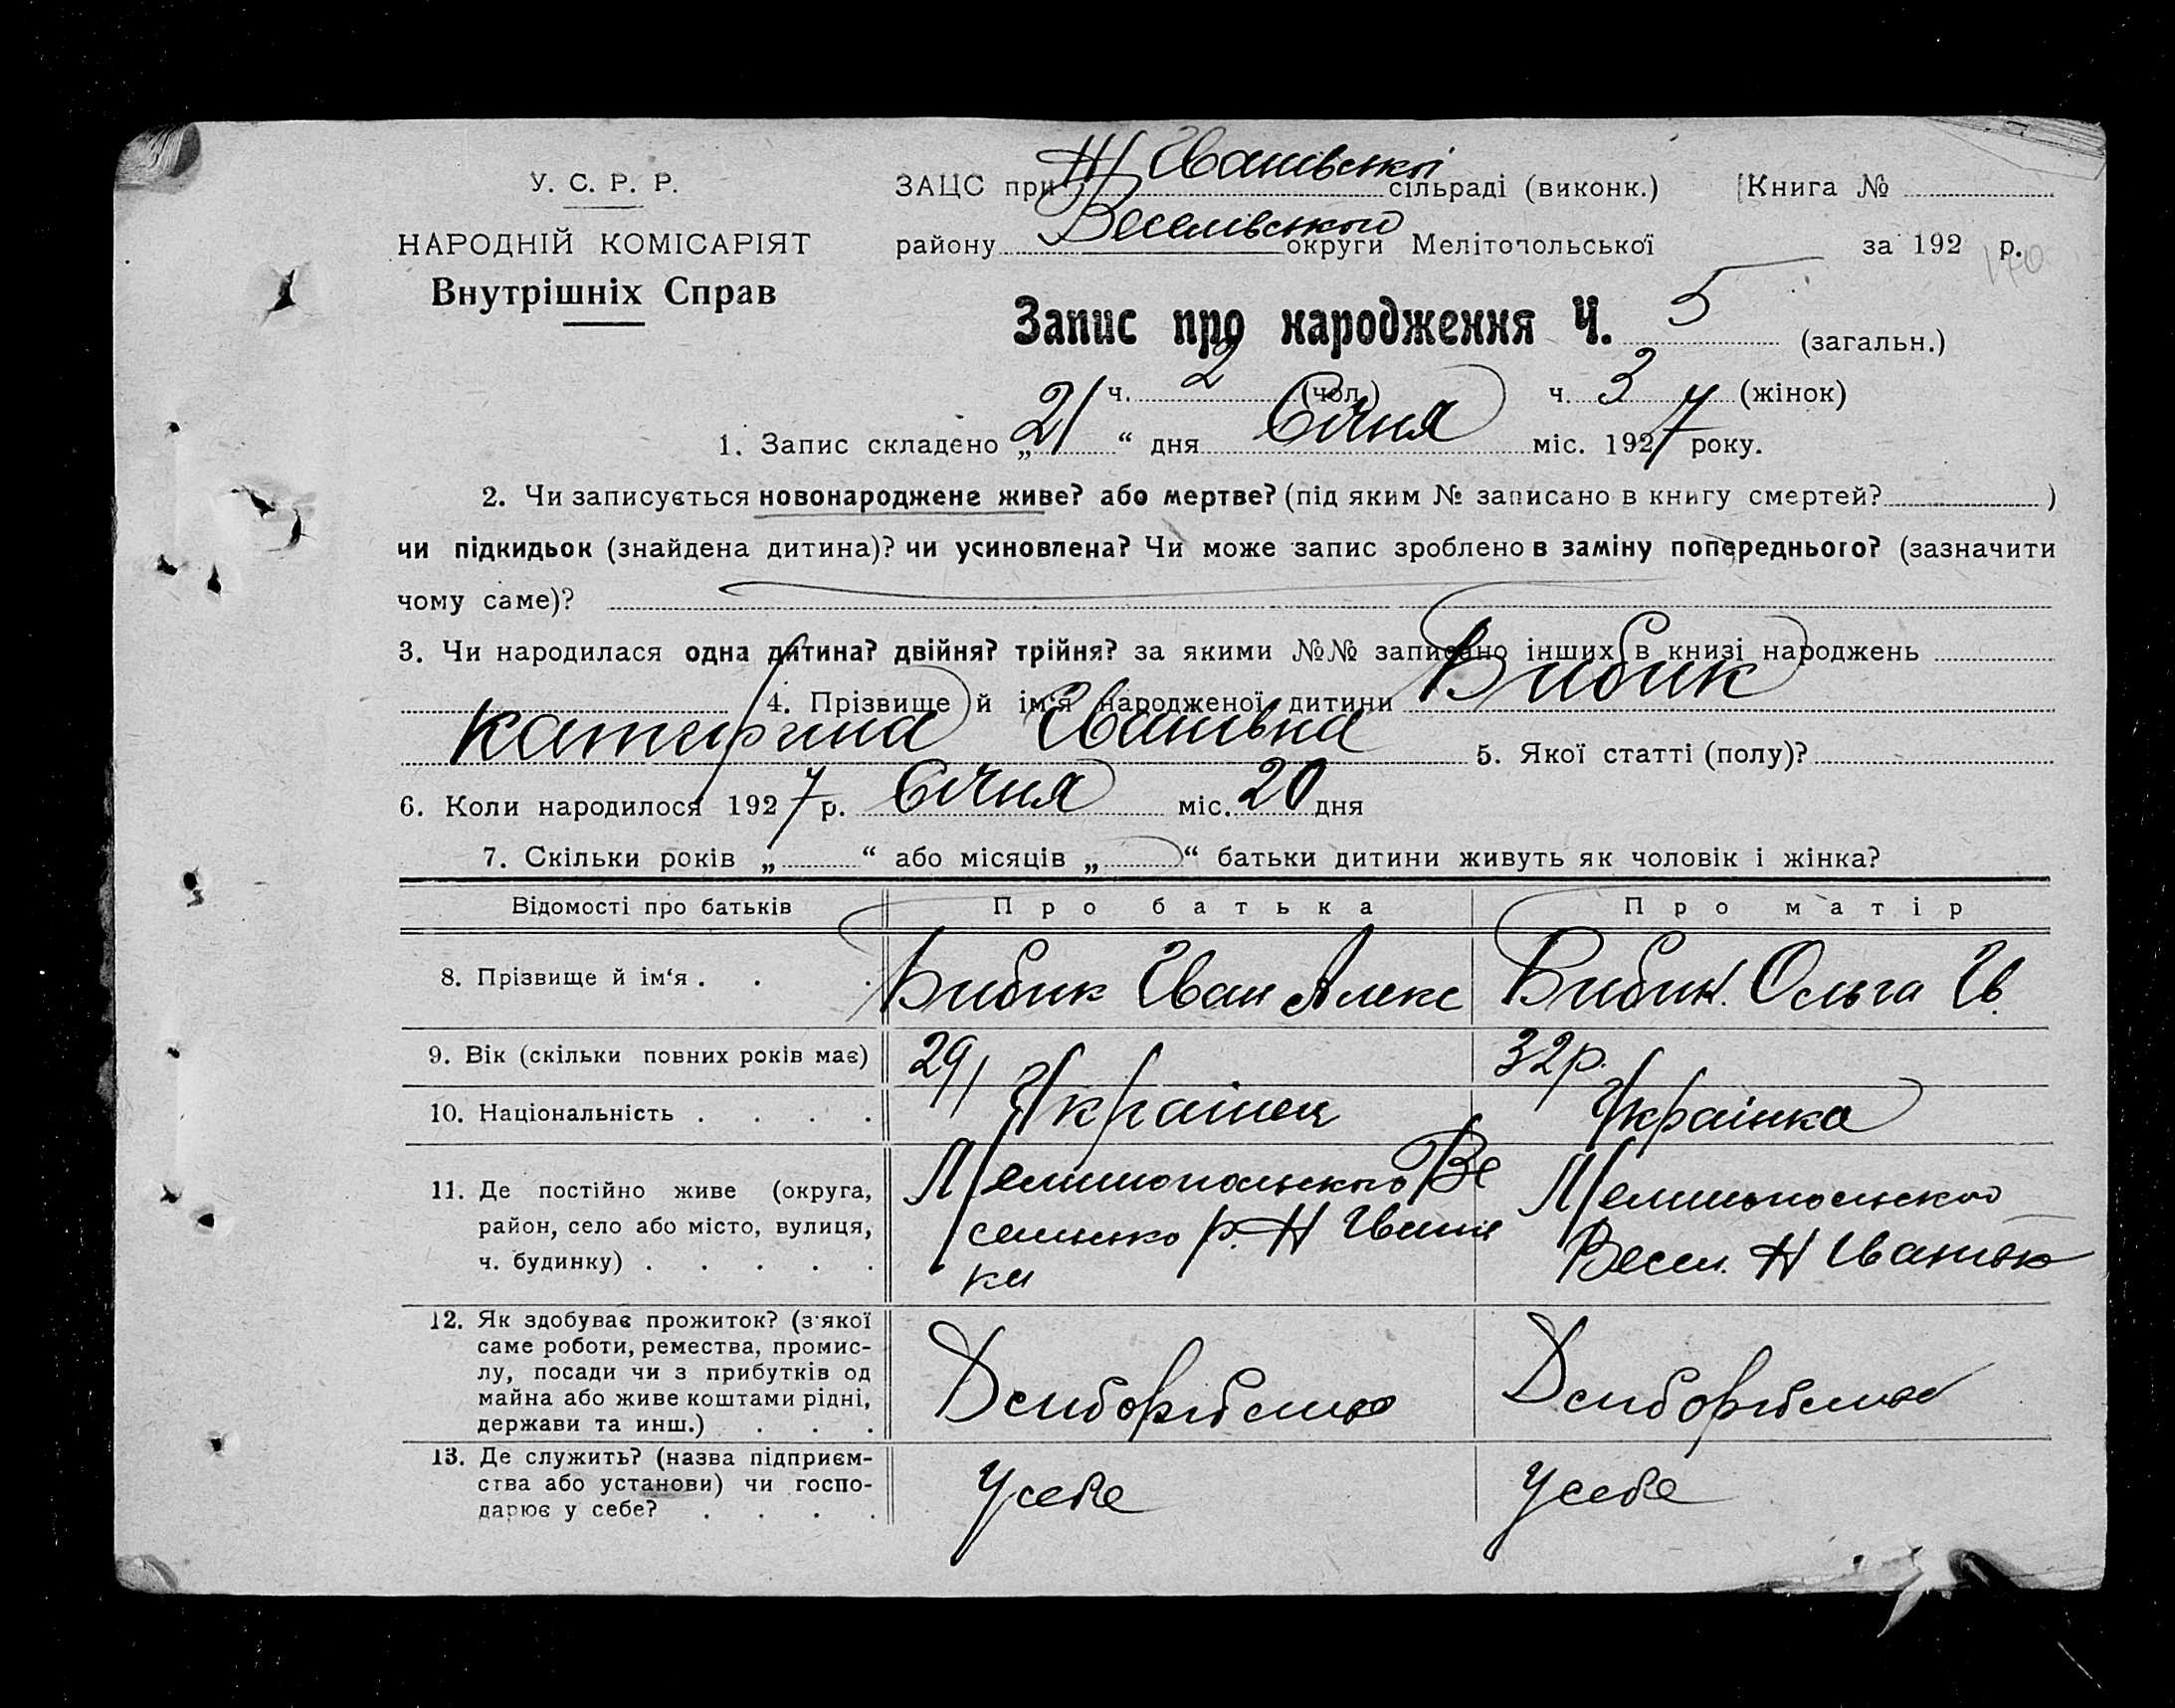 У. С. Р. Р.
НАРОДНІЙ КОМІСАРІЯТ
Внутрішніх Справ
ЗАЦС при Н Іванівській сільраді (виконк.) Книга №
району Веселівського округи Мелітопольської за 192 р.
Запис про народження Ч. 5 (загальн.)
ч. 2 (чол.) ч. 3 (жінок)
1. Запис складено „21“ дня Січня міс. 1927 року.
2. Чи записується новонароджене живе? або мертве? (під яким № записано в книгу смертей? )
чи підкидьок (знайдена дитина)? чи усиновлена? Чи може запис зроблено в заміну попереднього? (зазначити
чому саме)?
3. Чи народилася одна дитина? двійня? трійня? за якими №№ записано інших в книзі народжень
4. Прізвище й ім‘я народженої дитини Бибик
Катирина Іванівна 5. Якої статті (полу)?
6. Коли народилося 1927 р. Січня міс. 20 дня
7. Скільки років „ “ або місяців „ “ батьки дитини живуть як чоловік і жінка?
Відомості про батьків Про батька Про матір
8. Прізвище й ім‘я . . . Бибик Іван Алекс Бибик. Ольга Ів.
9. Вік (скільки повних років має) 29 32 р.
10. Національність . . . . Українец Українка
11. Де постійно живе (округа,
район, село або місто, вулиця,
ч. будинку) . . . . .
Мелитопольского Ве
р. Н
ки
Мелитопольского
Весел. Н
12. Як здобуває прожиток? (з якої
саме роботи, ремества, промис-
лу, посади чи з прибутків од
майна або живе коштами рідні,
держави та инш.) . . .
13. Де служить? (назва підприєм-
ства або установи) чи госпо-
дарює у себе? . . . .
У себе У себе